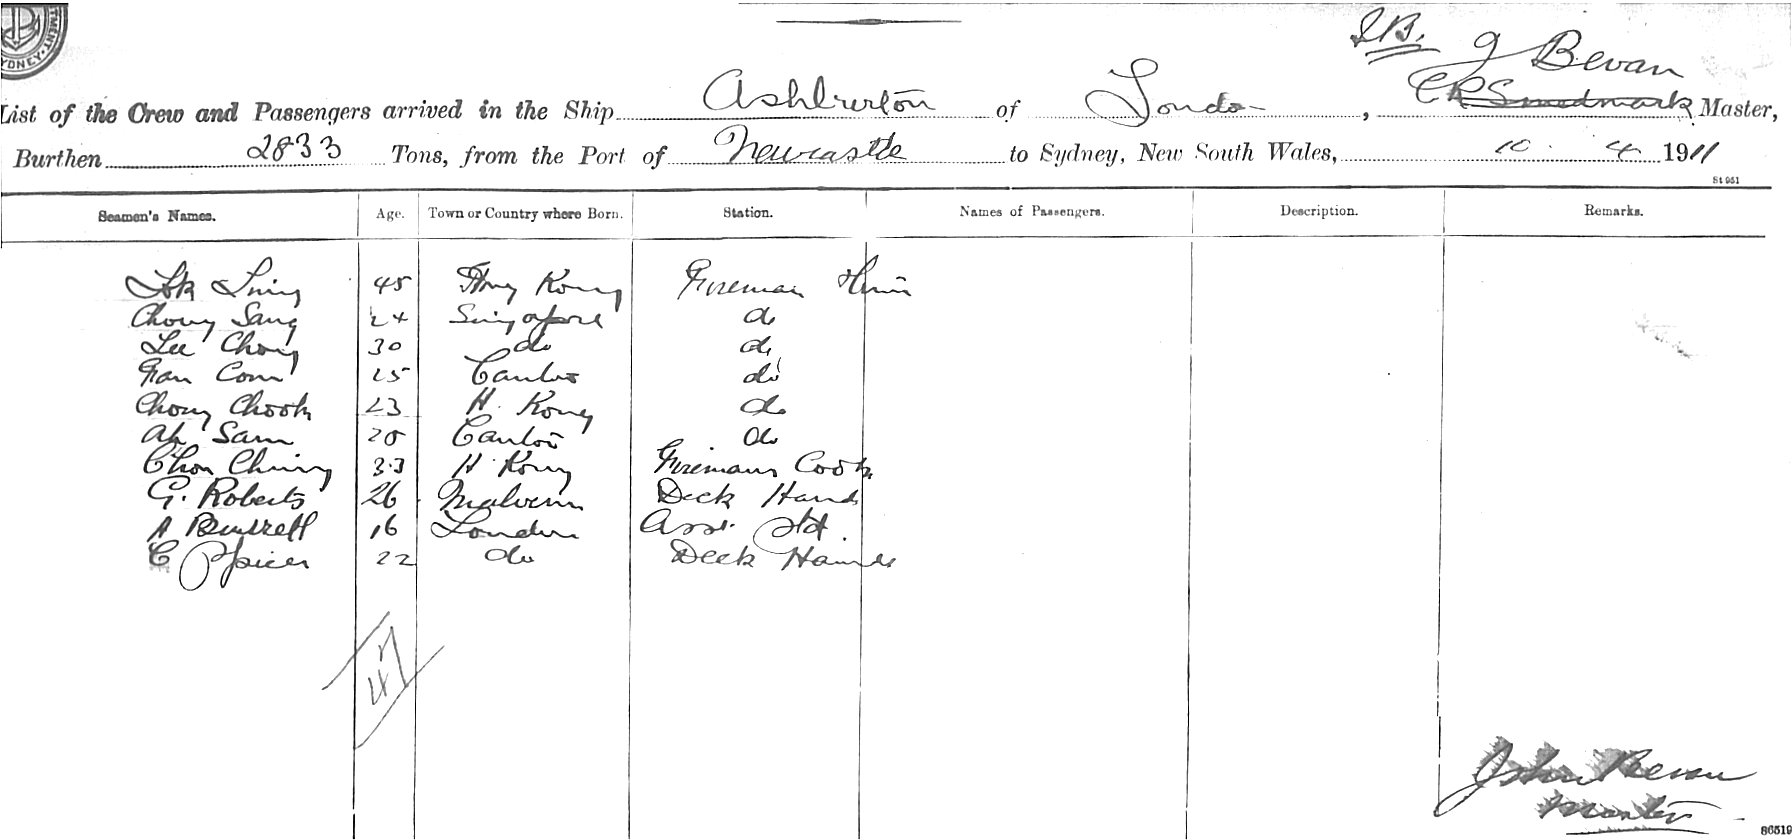 TMENT. SYDNEY.
J.B. J Bevan
List of the Crew and Passengers arrived in the Ship Ashburton of London, C R Smedmark Master,
Burthen 2833 Tons, from the Port of Newcastle to Sydney, New South Wales, 10. 4. 1911
St 951
Seamen's Names. Age. Town or Country where Born. Station. Names of Passengers. Description. Remarks.
45 Hong Kong Fireman
Chong Sang 24 Singapore do
Lee Chong 30 do do
25 Canton do
Chong Chook 23 H. Kong do
Ah Sam 28 Canton do
Chon Ching 33 H. Kong Firemans Cook
G. Roberts 26 Malvern Deck Hand
A Burrell 16 London Asst. Std.
C Spicer 22 do Deck Hand
47
John Bevan
Master
86519